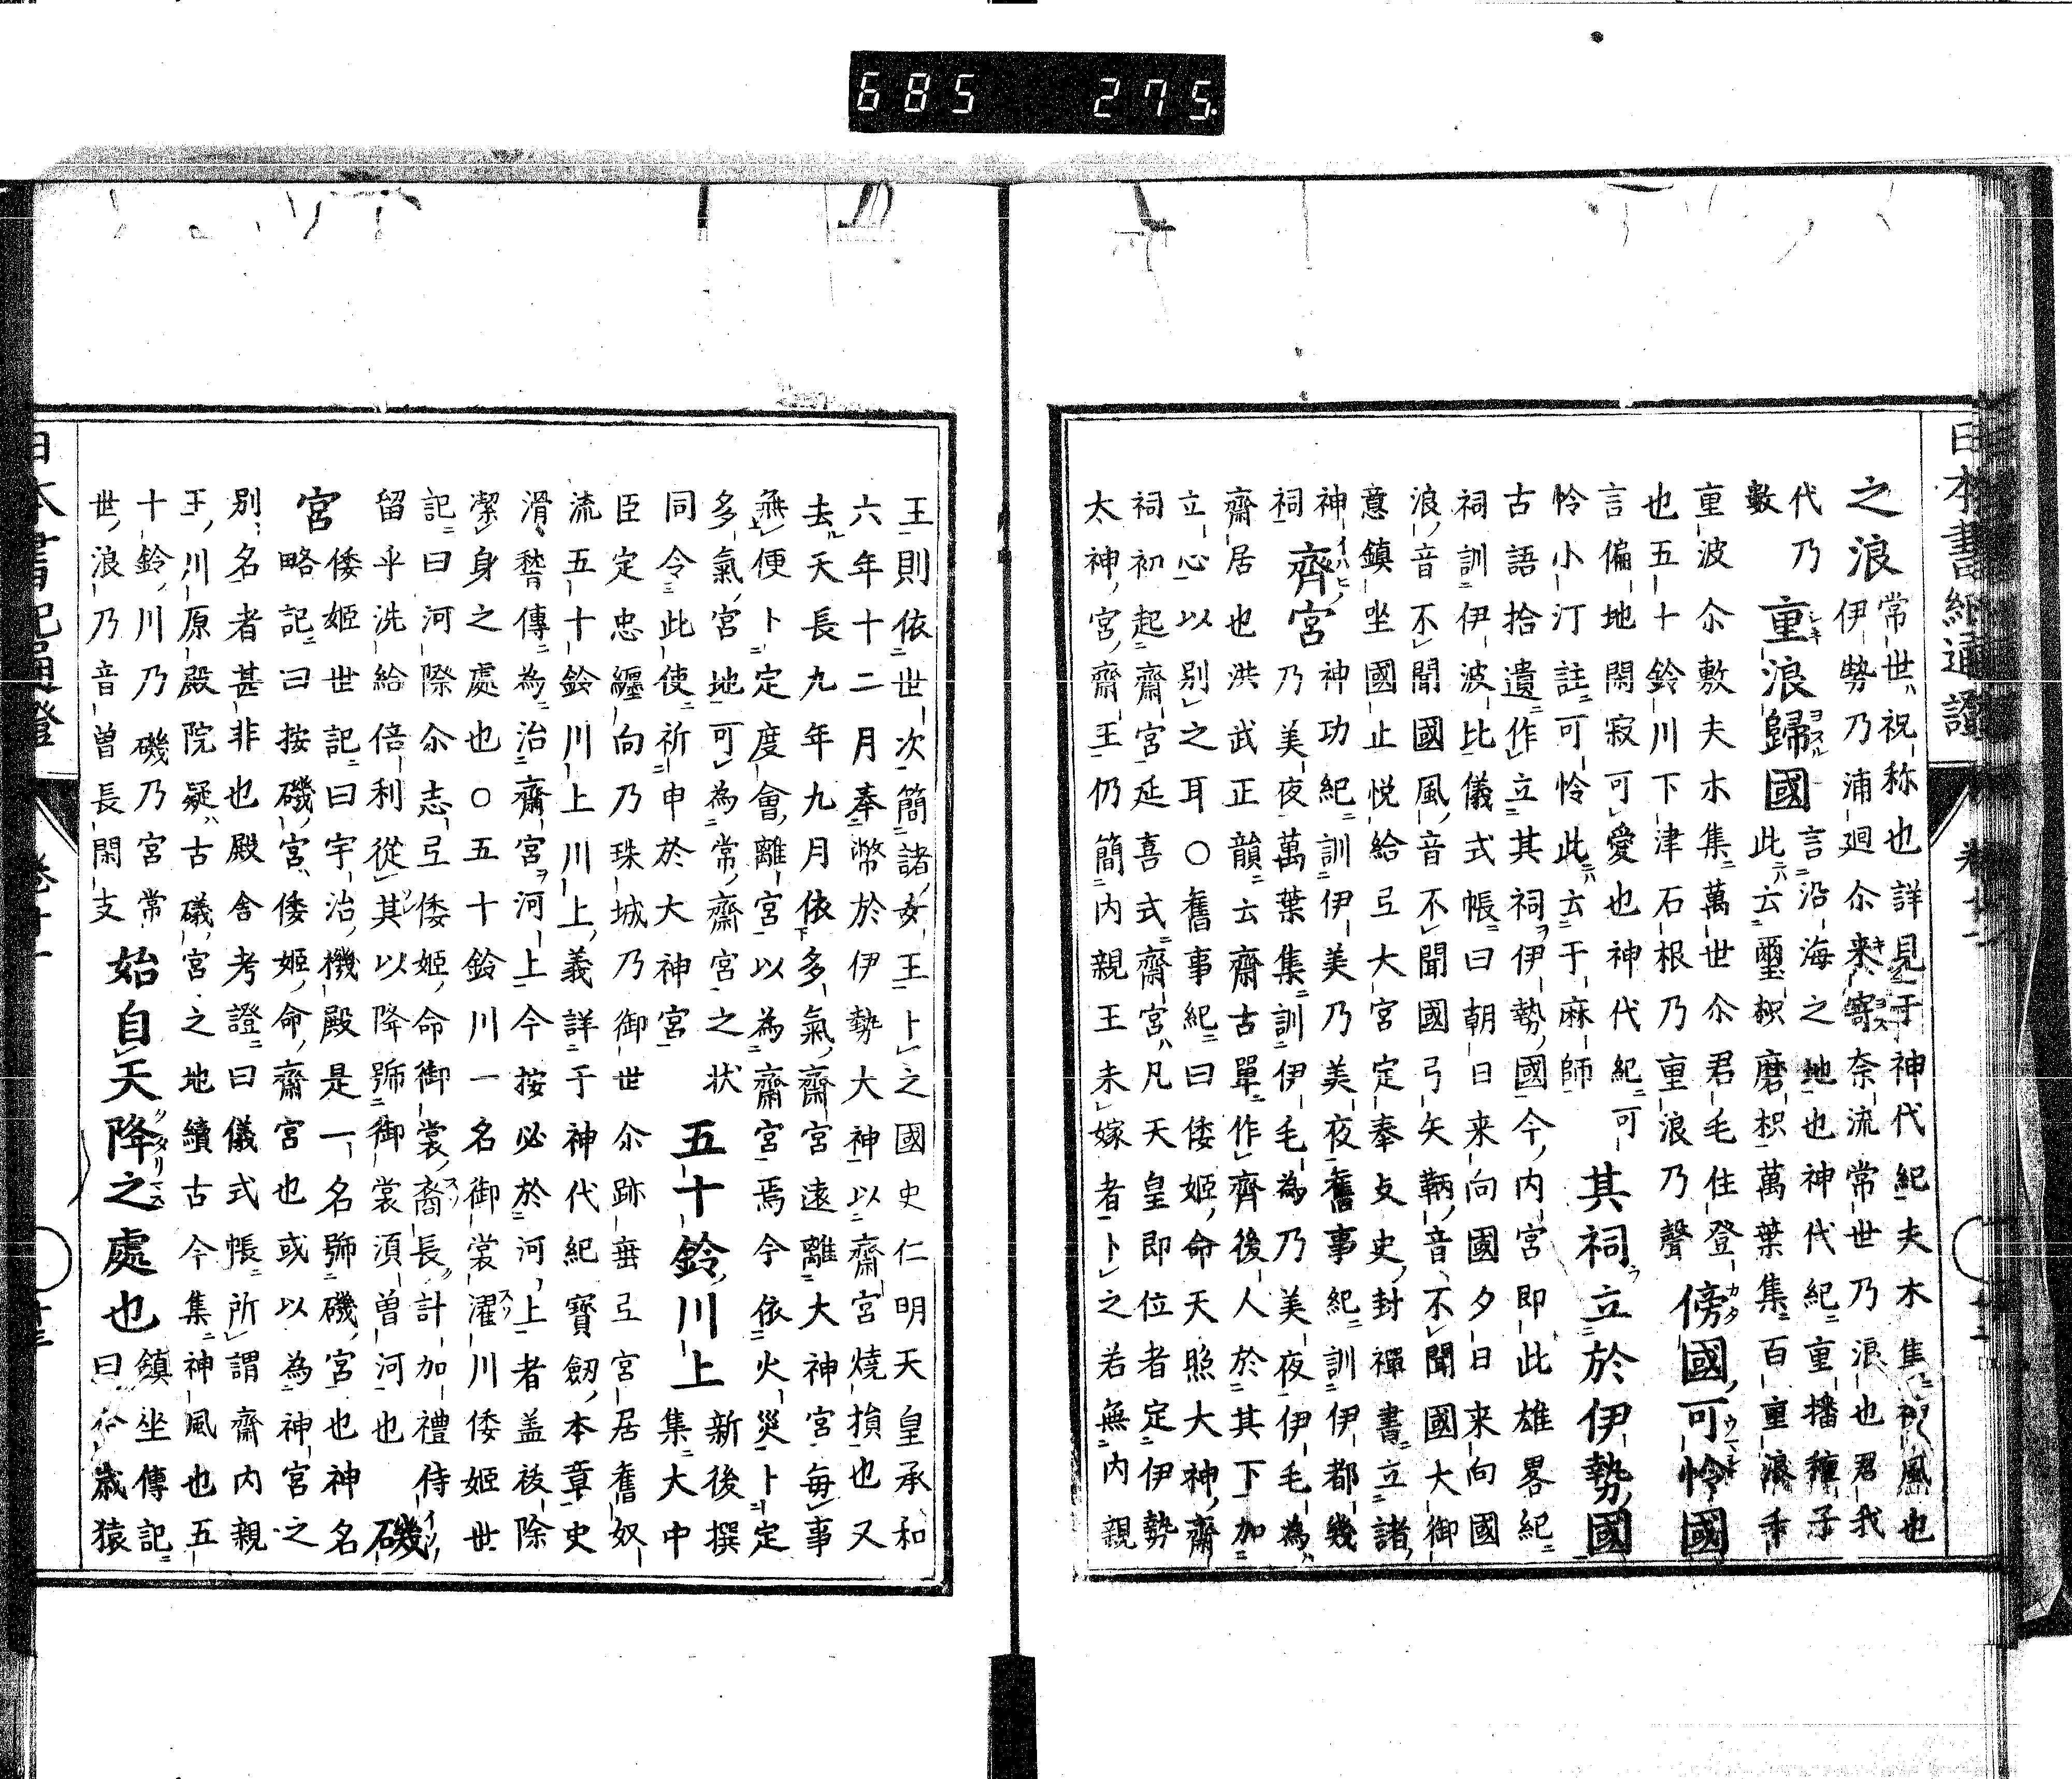 685 275
日本書紀通證 卷十一 十三
之浪
常世祝称也詳見于神代紀夫木集神風也
伊勢乃浦廻尓来寄奈流常世乃浪也君我
代乃
數
重浪歸國
言沿海之地也神代紀重播種子
此云璽枳磨枳萬葉集百重浪千
重波尓敷夫木集萬世尓君毛住登
也五十鈴川下津石根乃重浪乃聲
傍國可怜國
言偏地閑寂可愛也神代紀可
怜小汀註可怜此云于麻師
其祠立於伊勢國
古語拾遺作立其祠伊勢國今内宮即此雄畧紀
祠訓伊波比儀式帳曰朝日来向國夕日来向國
浪音不聞國風音不聞國弓矢鞆音不聞國大御
意鎮坐國止悦給弖大宮定奉攴史封禪書立諸
神祠
神功紀訓伊美乃美夜舊事紀訓伊都幾
齊宮
乃美夜萬葉集訓伊毛為乃美夜伊毛為
齋居也洪武正韻云齋古單作齊後人於其下加
立心以別之耳○舊事紀曰倭姬命天照大神齋
祠初起齋宮延喜式齋宮凡天皇即位者定伊勢
太神宮齋王仍簡内親王未嫁者卜之若無内親
王則依世次簡諸女王卜之國史仁明天皇承和
六年十二月奉幣於伊勢大神以齋宮燒損也又
去天長九年九月依多氣齋宮遠離大神宮毎事
無便卜定度會離宮以為齋宮焉今依火災卜定
多氣宮地可為常齋宮之状
同令此使祈申於大神宮
五十鈴川上
新後撰
集大中
臣定忠纒向乃珠城乃御世尓跡垂弖宮居舊奴
流五十鈴川上川上義詳于神代紀寶劔本章史
滑稽傳為治齋宮河上今按必於河上者盖祓除
潔身之處也○五十鈴川一名御裳濯川倭姬世
記曰河際尓志弖倭姬命御裳裔長計加禮侍
留乎洗給倍利從其以降號御裳須曽河也
磯宮
倭姬世記曰宇治機殿是一名號磯宮也神名
略記曰按磯宮倭姬命齋宮也或以為神宮之
別名者甚非也殿舎考證曰儀式帳所謂齋内親
王川原殿院疑古礒宮之地續古今集神風也五
十鈴川乃磯乃宮常
世浪乃音曽長閑支
始自天降之處也
鎮坐傳記
曰 歲猿
日本書紀通證 卷十一 十三